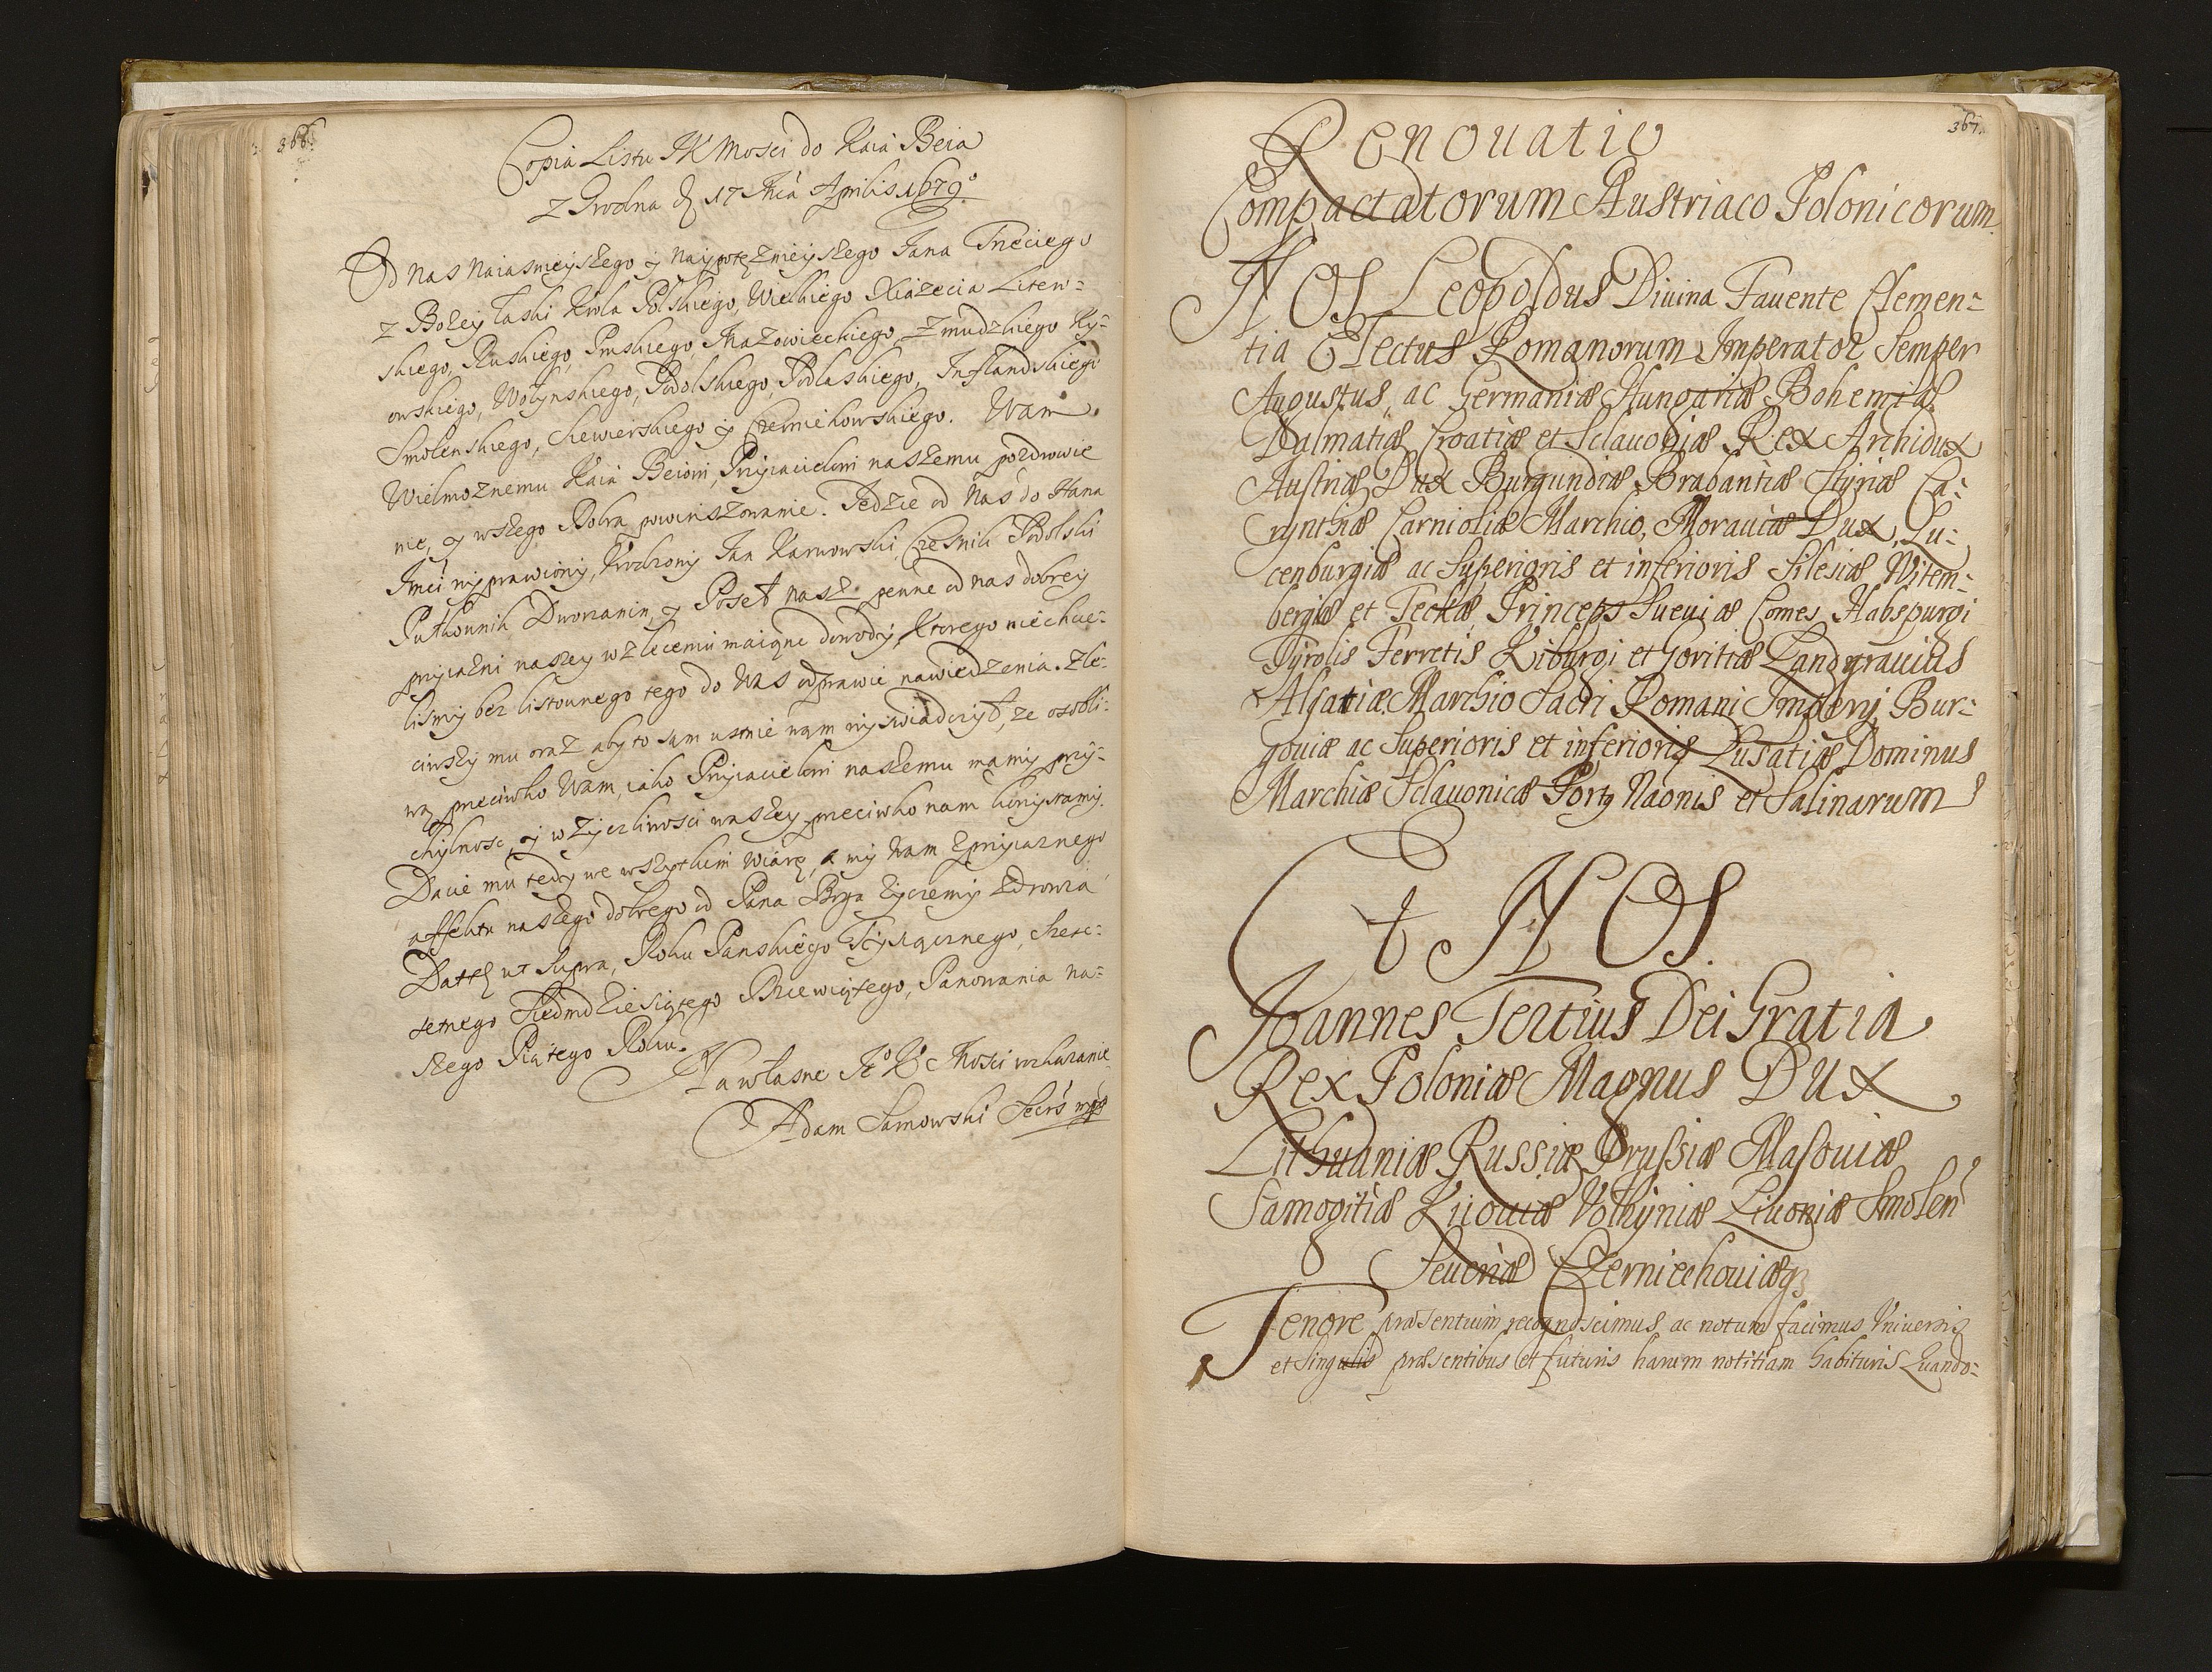 366.
Copia Listu JK Mosci do Kaia Beia
z Grodna d 17 Mca Aprilis 1679º
Od nas Naiasnieyszego y Naypotęznieyszego Jana Trzeciego
z Bożey Łaski Krola Polskiego, Wielkiego Xiążecia Litew=
skiego, Ruskiego, Pruskiego Mazowieckiego, Zmudzkiego Ky=
owskiego, Wołynskiego, Podolskiego, Podlaskiego, Inflandskiego
Smolenskiego, Siewierskiego y Czerniehowskiego. Wam
Wielmoznemu Kaia Beiowi, Przyiacielowi naszemu pozdrowie
nie, y wszego Dobra powinszowanie. Jedzie od Nas do Hana
Jmci wyprawiony, Urodzony Jan Karwowski Czesnik Podolski
Pułkownik Dworzanin, y Poseł nasz pewne od nas dobrey
przyiazni naszey w zleceniu maiąne dowody, ktorego niechcie=
lismy bez listownego tego do Was odprawic nawiedzenia. Zle=
ciwszy mu oraz aby to sam ustnie wam wyswiadczył, ze osobli=
wą przeciwko Wam, iako Przyiacielowi naszemu mamy przy=
chylnosc, y w Zyczliwosci waszey przeciwko nam korzystamy.
Dacie mu tedy we wszytkim wiarę, a my Wam z przyiaznego
affektu naszego dobrego od Pana Boga życzemy zdrowia
Datt ut Supra, Roku Panskiego Tysiącznego, Szesc=
setnego Siedmdziesiątego Dziewiątego, Panowania na=
szego Piątego Roku.
Na własne Jº Kº Mosci wskazanie
Adam Sarnowski Secrs mpp
367.
Renouatio
Compactatorum Austriaco Polonicorum
NOS Leopoldus Diuina Fauente Clemen=
tia Electus Romanorum Imperator Semper
Augustus, ac Germaniæ Hungariæ Bohemiæ
Dalmatiæ Croatiæ et Sclauoniæ Rex Archidux
Austriæ Dux Burgundiæ Brabantiæ Styriæ Ca=
rynthiæ Carnioliæ Marchio, Morauiæ Dux, Lu=
cenburgiæ ac Superioris et inferioris Silesiæ Witem=
bergiæ et Teckæ Princeps Sueuiæ Comes Habspurgi
Tyrolis Ferretis Kiburgi et Goritiæ Landgrauius
Alsatiæ Marchio Sacri Romani Imperij Bur=
gouiæ ac Superioris et inferioris Lusatiæ Dominus
Marchiæ Sclauonicæ Portg Naonis et Salinarum
Et NOS
Joannes Tertius Dei Gratia
Rex Poloniæ Magnus Dux
Lithuaniæ Russiæ Prussiæ Masouiæ
Samogitiæ Kijouiæ Volhyniæ Liuoniæ Smolen
Seueriæ Czerniechouiæq3
Tenore præsentium recognoscimus ac notum facimus Vniuersis
et Singulis præsentibus et futuris harum notitiam habituris Quando=